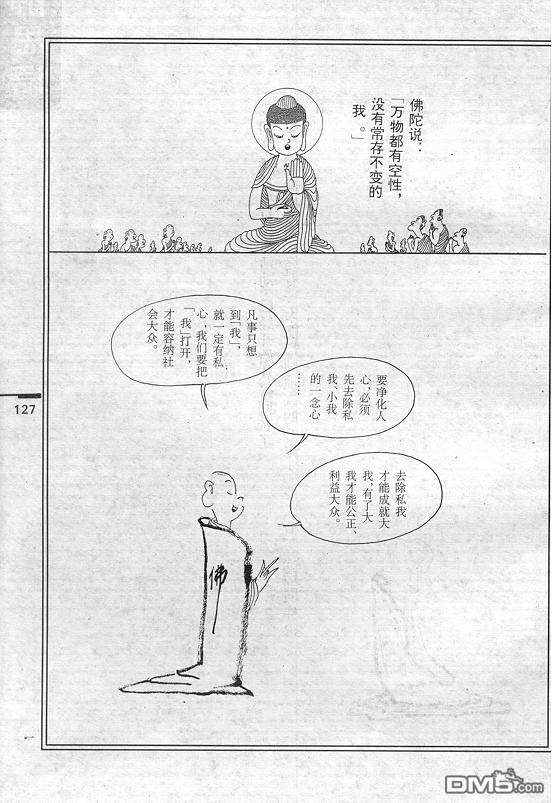 佛陀说：
「万物都有空性，
没有常存不变的
我。」
凡事只想
到「我」，
就一定有私
心，我们要把
「我」打开，
才能容纳社
会大众。
要净化人
心，必须
先去除私
我、小我
的一念心
……
去除私我
才能成就大
我，有了大
我才能公正、
利益大众。
佛
127
DM5.com